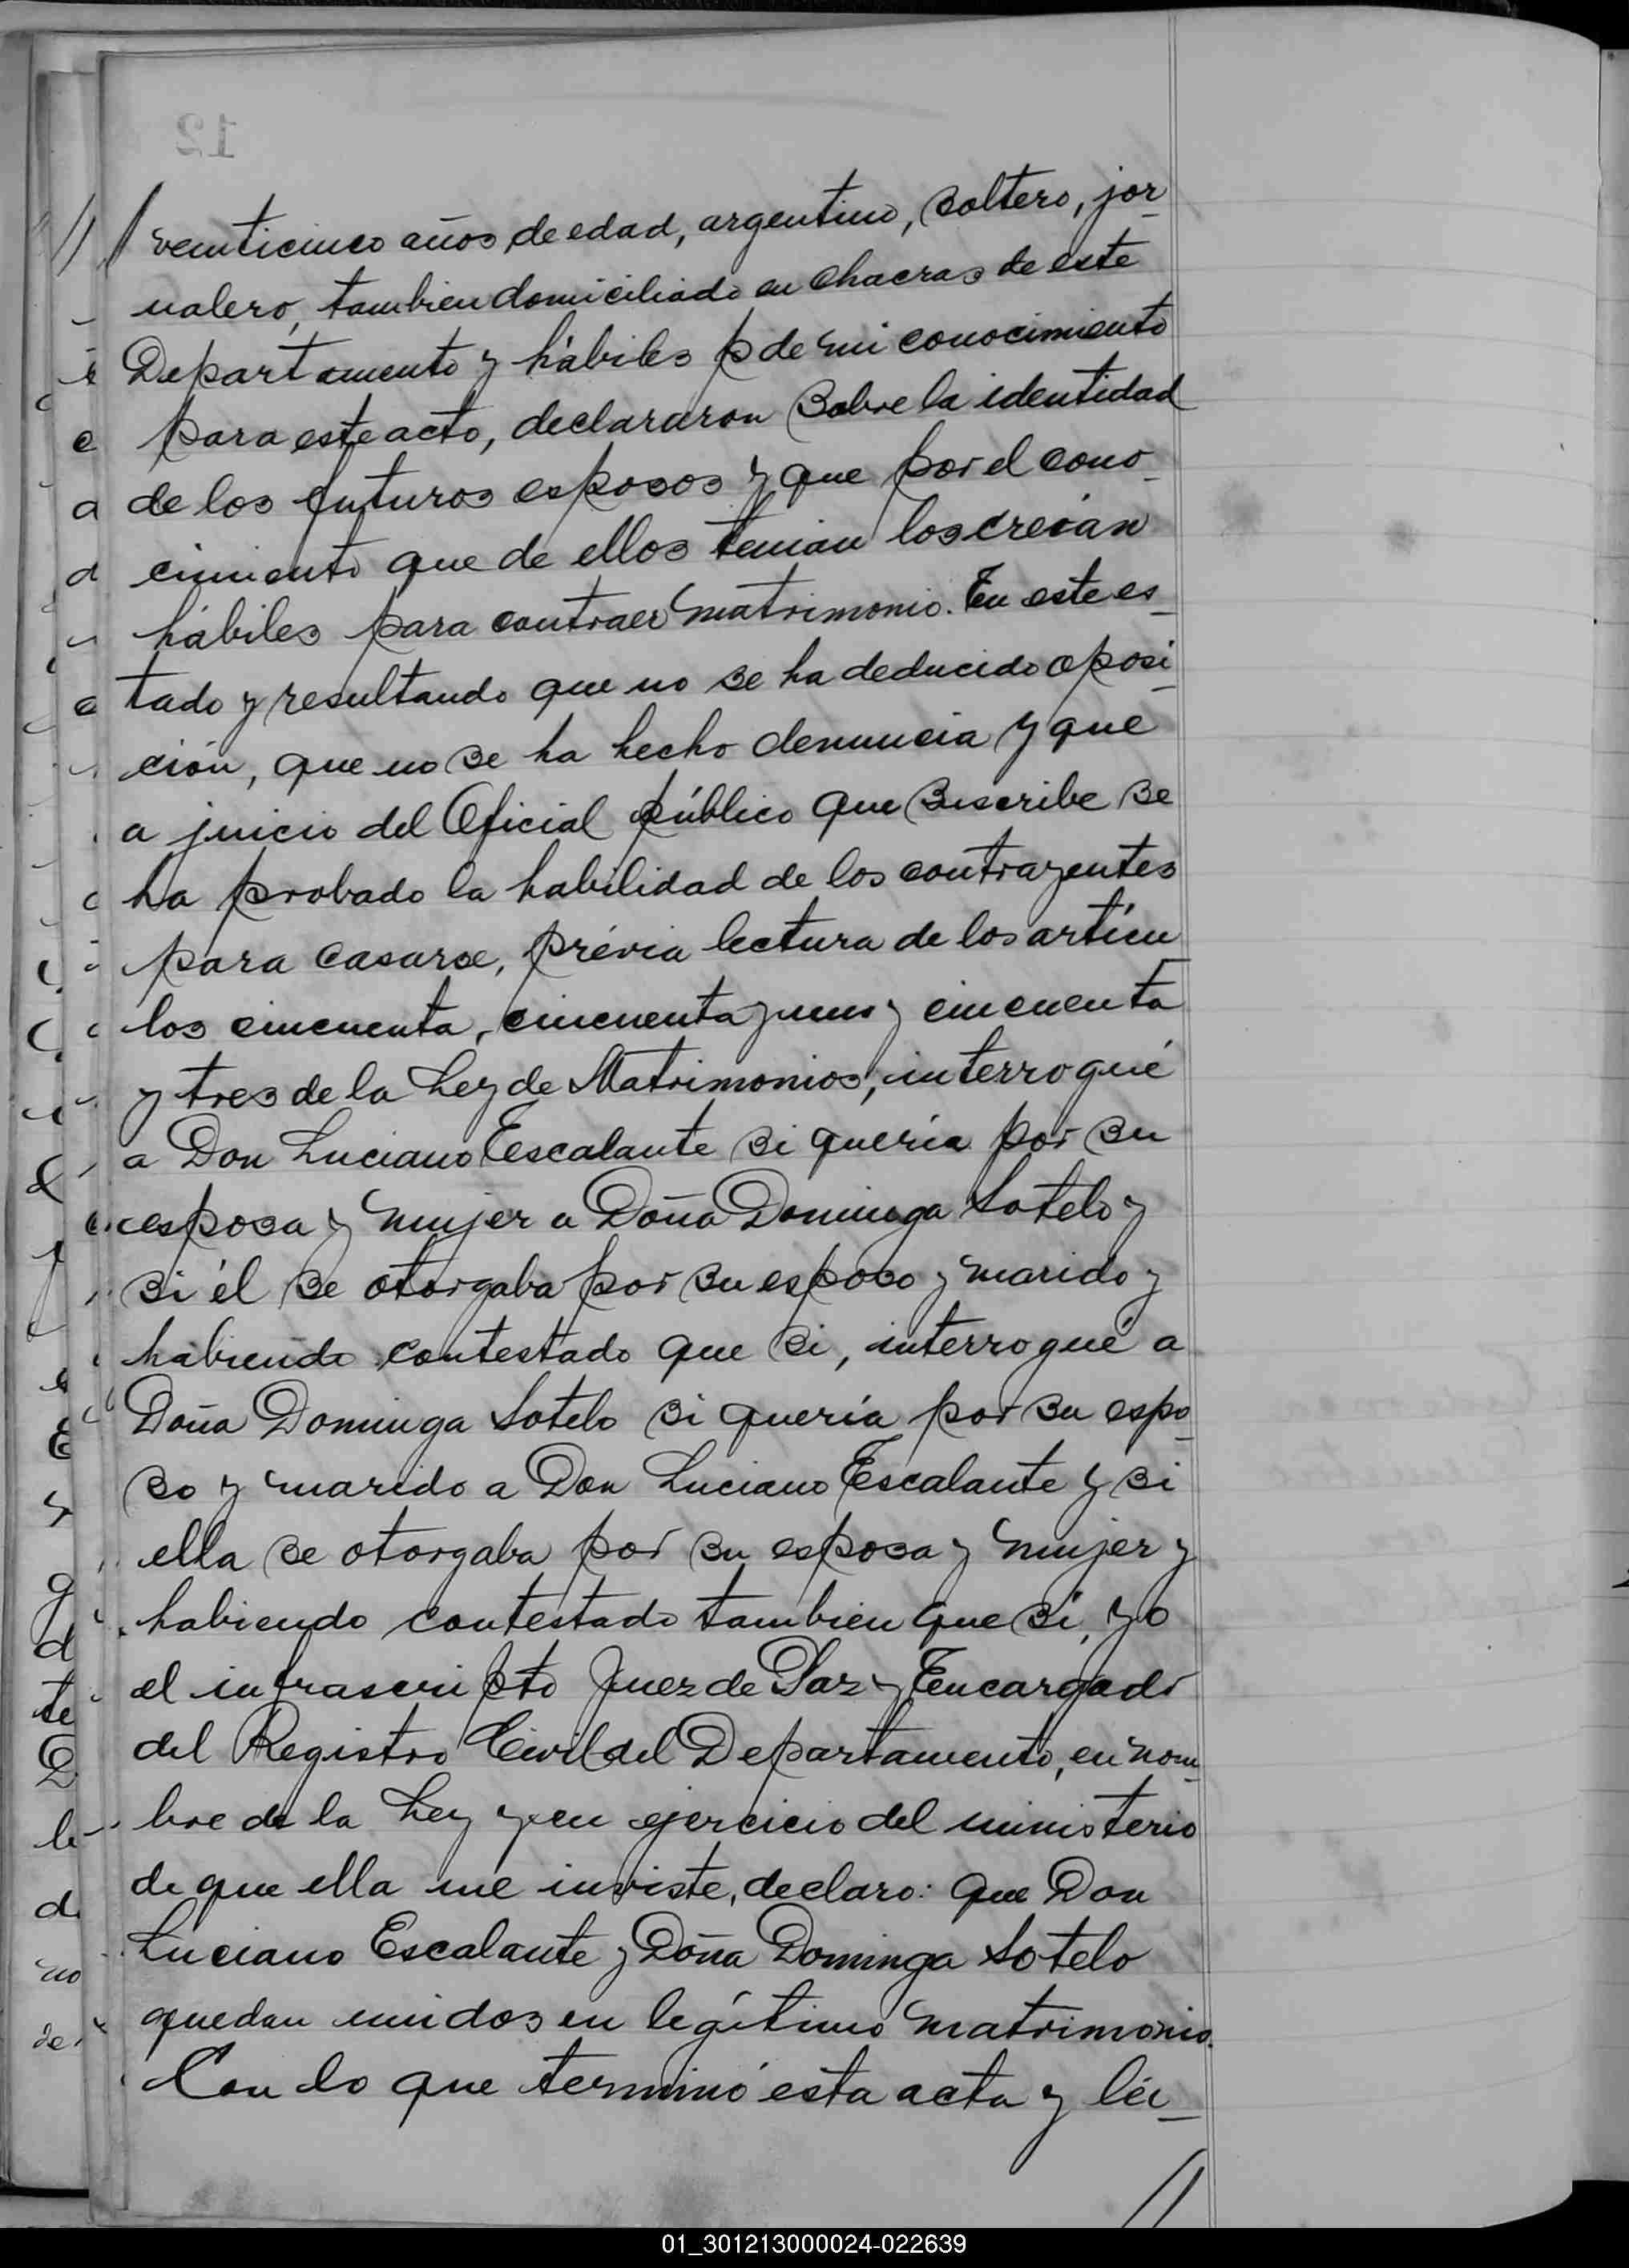 // veinticinco años de edad, argentino, soltero, jor-
nalero, tambien domiciliado en chacras de este
Departamento y hábiles p de mi conocimiento
para este acto, declararon sobre la identidad
de los futuros esposos y que por el cono-
cimiento que de ellos tenian los creían
hábiles para contraer matrimonio. En este es-
tado y resultando que no se ha deducido oposi-
ción, que no se ha hecho denuncia y que
a juicio del Oficial público que suscribe se
ha probado la habilidad de los contrayentes
para casarse, prévia lectura de los artícu-
los cincuenta, cincuenta y uno y cincuenta
y tres de la Ley de Matrimonios, interrogué
a Don Luciano Escalante si quería por su
esposa y mujer a Doña Dominga Sotelo y
si él se otorgaba por su esposo y marido y
habiendo contestado que si, interrogué a
Doña Dominga Sotelo si quería por su espo-
so y marido a Don Luciano Escalante y si
ella se otorgaba por su esposa y mujer y
habiendo contestado tambien que sí, yo
el infrascripto Juez de Paz y Encargado
del Registro Civil del Departamento, en nom-
bre de la Ley y en ejercicio del ministerio
de que ella me inviste, declaro: que Don
Luciano Escalante y Doña Dominga Sotelo
quedan unidos en legítimo matrimonio.
Con lo que terminó esta acta y léi-
//
01_301213000024-022639